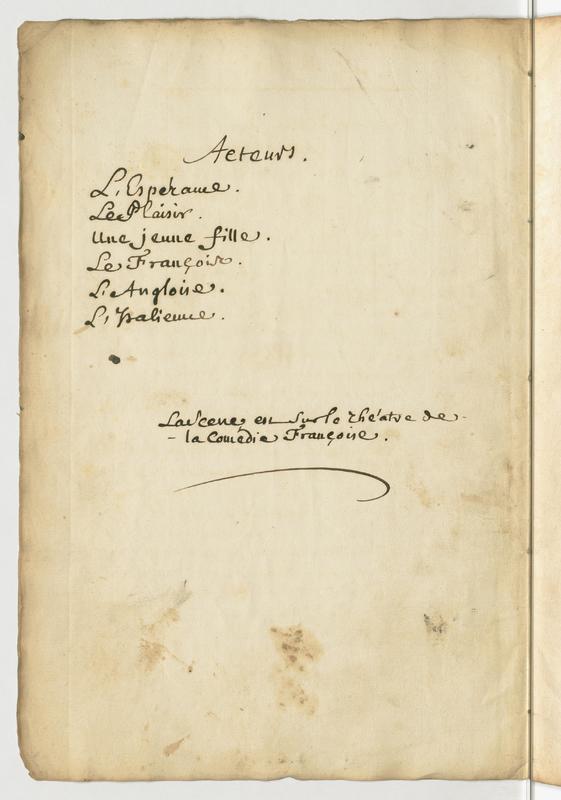 Acteurs.
L'Espérance.
Le Plaisir.
Une jeune fille.
Le François.
L'Angloise.
L'Italienne.
La Scene est sur le théatre de-
- la Comédie Françoise.